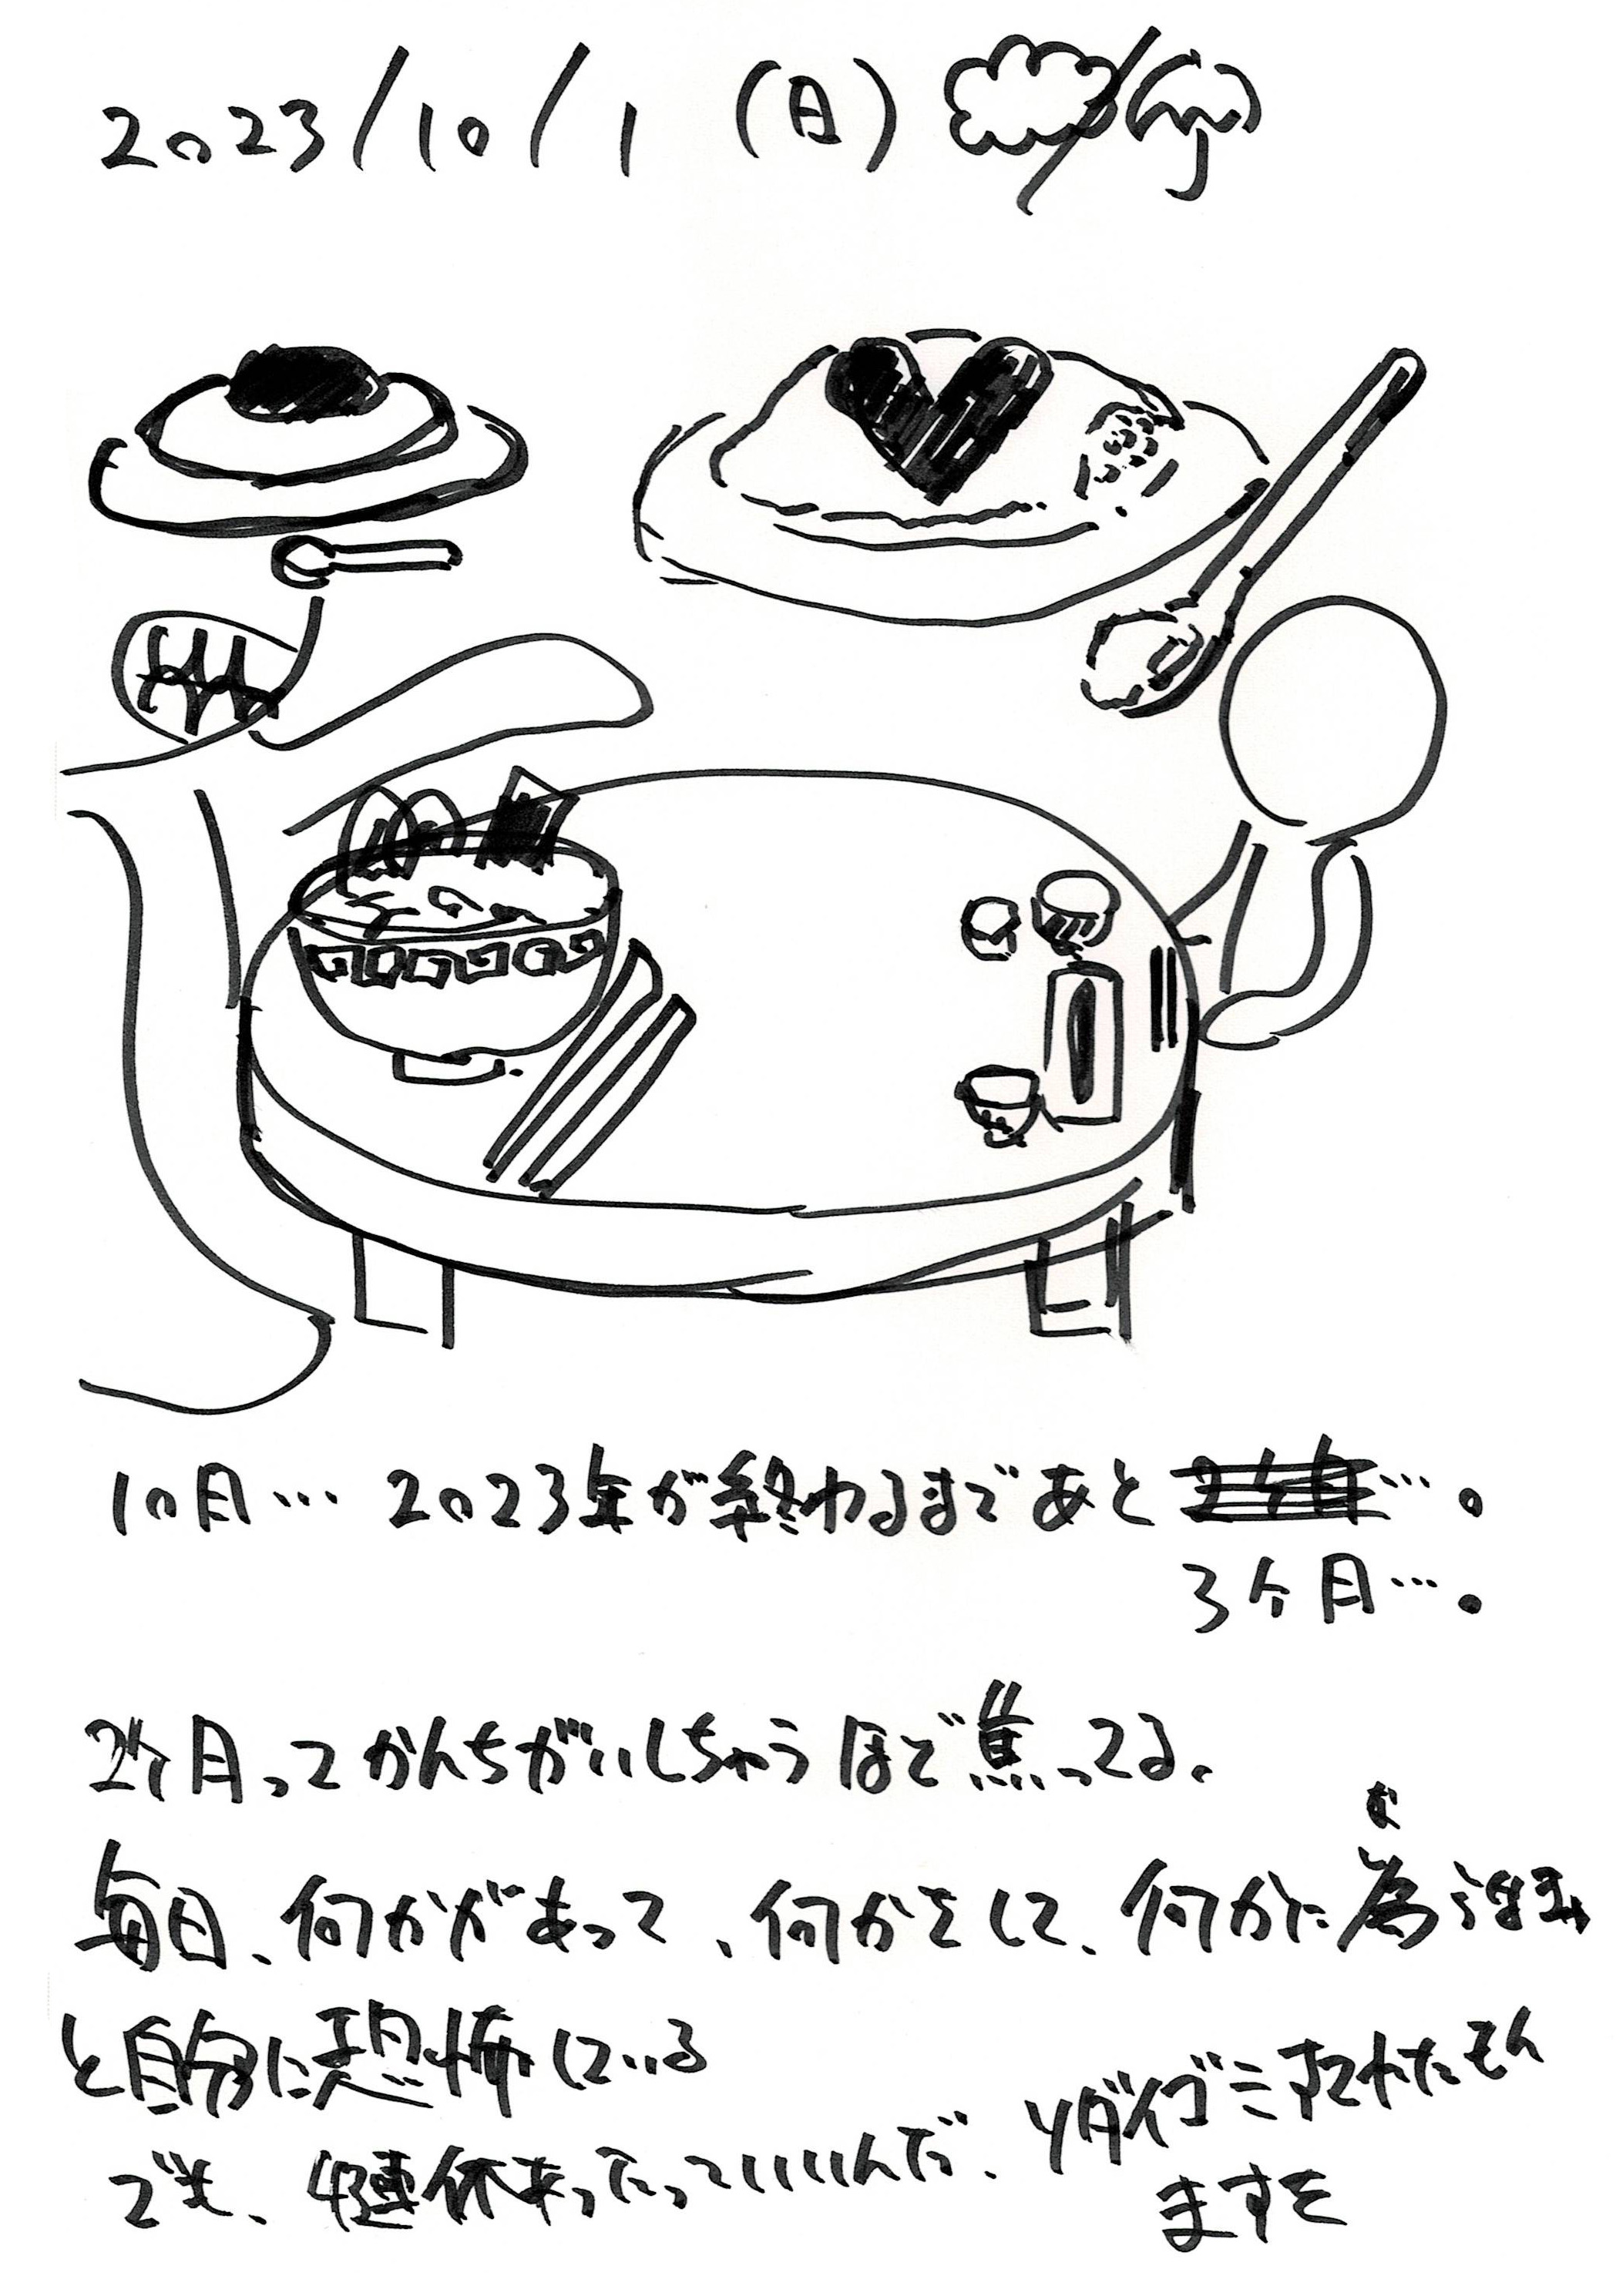 2023/10/1 (日)
10月… 2023年が終わるまであと 2ヶ月…。
3ヶ月…。
2ヶ月ってかんちがいしちゃうほど焦ってる。
毎日、何かがあって、何かをして、何かに
と自分に恐怖している
でも、4連休あったっていいんだ、
ますを